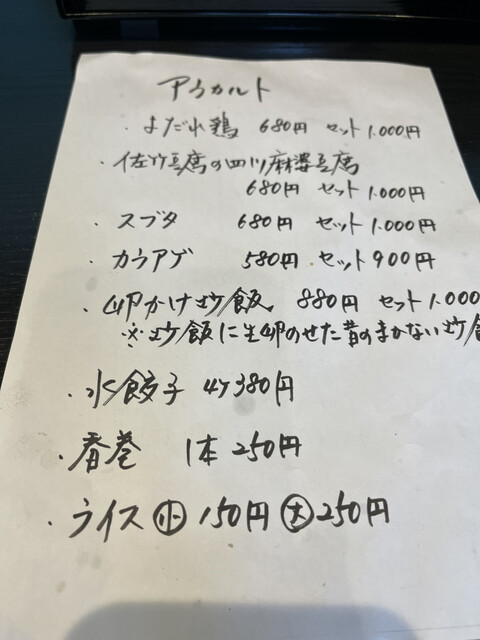 アラカルト
・よだれ鶏 680円 セット 1.000円
・佐竹豆腐の四川麻婆豆腐
680円 セット 1.000円
・スブタ 680円 セット 1.000円
・カラアゲ 580円 セット900円
・卵かけ炒飯 880円 セット 1.000
※炒飯に生卵のせた昔のまかない炒飯
・水餃子 4ケ380円
・春巻 1本 250円
・ライス ㊙小 150円 大 250円